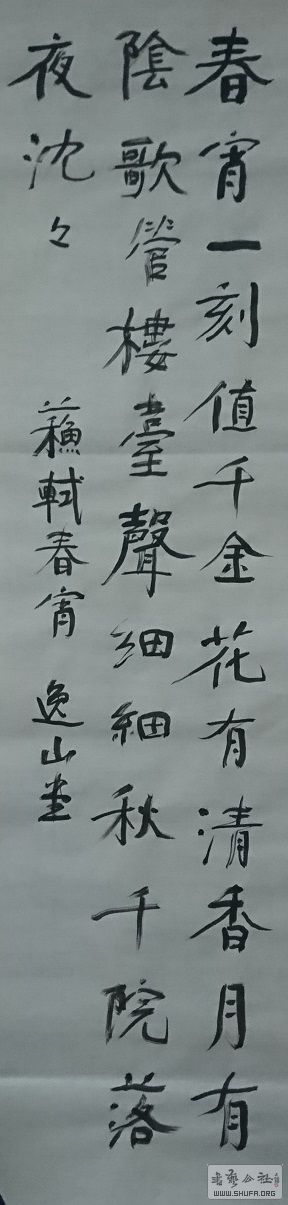 春宵一刻值千金花有清香月有
陰歌管樓臺聲细細秋千院落
夜沈々
蘇軾春宵 逸山堂
书艺公社
WWW.SHUFA.ORG